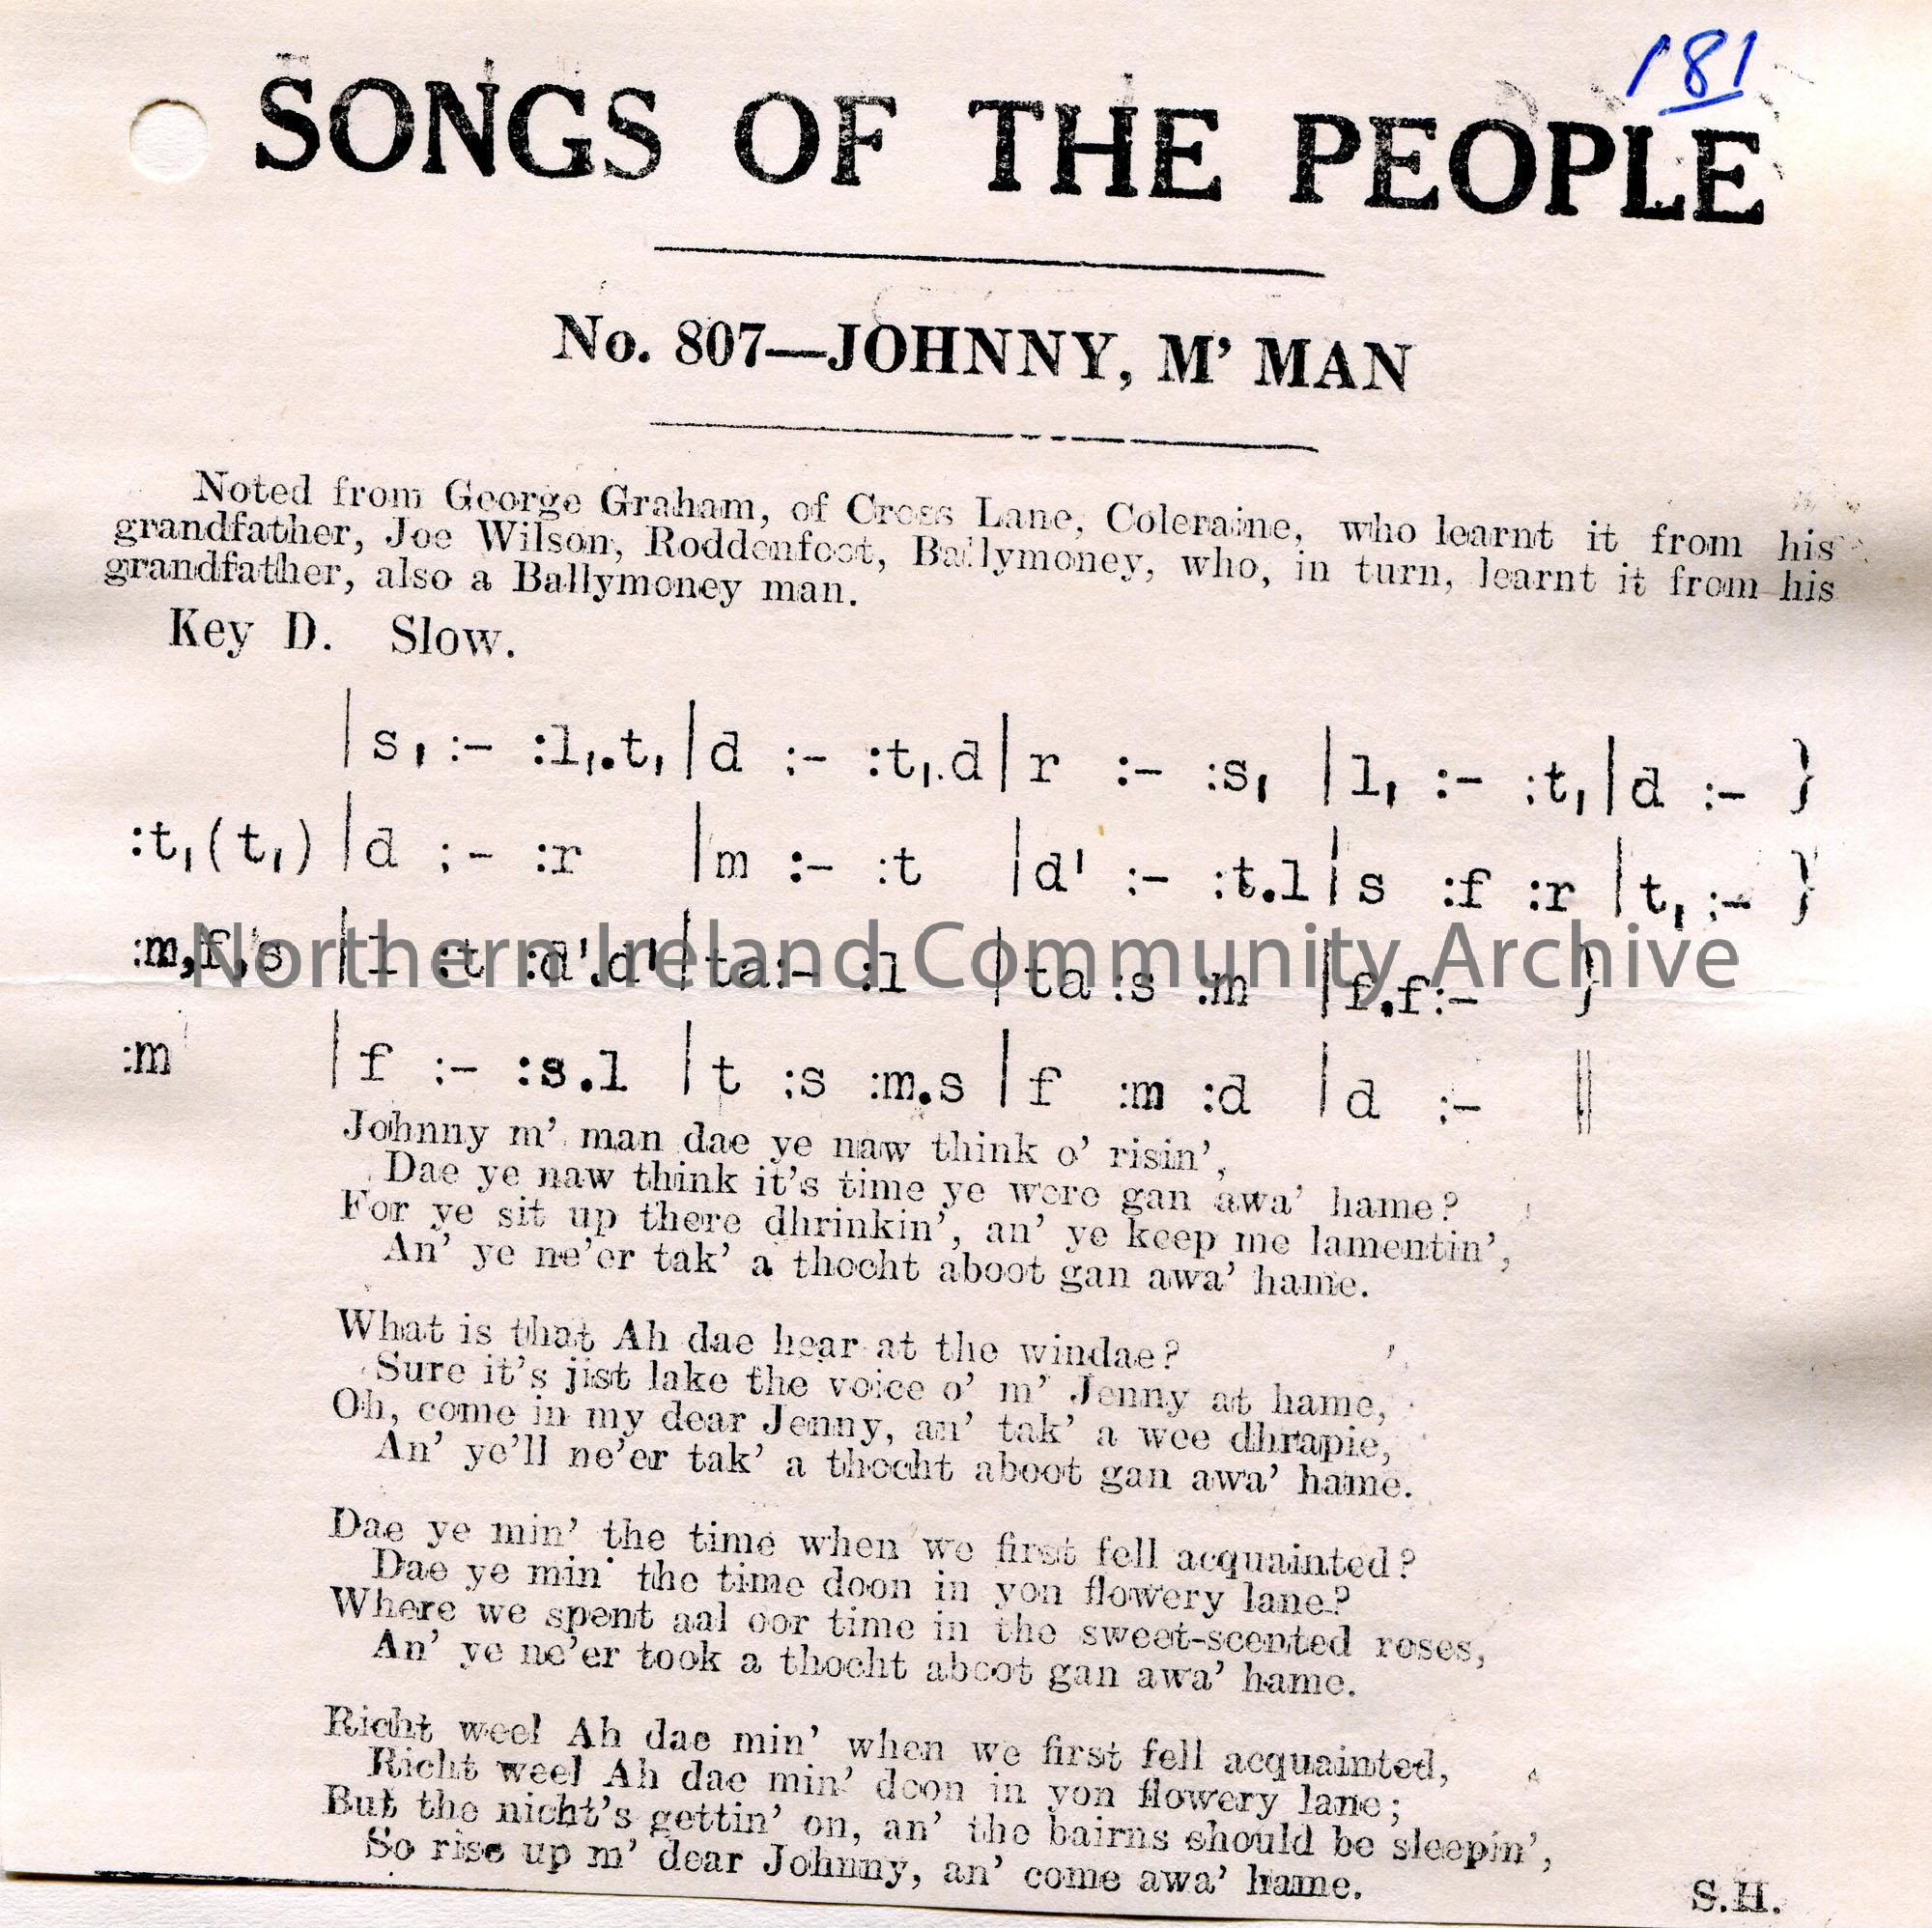 181
SONGS OF THE PEOPLE
No. 807—JOHNNY, M' MAN
Noted from George Graham, of Cross Lane, Coleraine, who learnt it from his
grandfather, Joe Wilson, Roddenfoot, Ballymoney, who, in turn, learnt it from his
grandfather, also a Ballymoney man.
Key D. Slow.
|s, :- :l,.t,|d :- :t,.d|r :- :s, |l, :- :t,|d :- }
:t,(t,)|d :- :r |m :- :t |d' :- :t.l|s :f :r |t, :- }
:m,f,s |l :t :d'.d'|ta:- :l |ta :s :m |f.f:- }
:m |f :- :s.l |t :s :m.s|f :m :d |d :- ||
Northern Ireland Community Archive
Johnny m' man dae ye naw think o' risin',
Dae ye naw think it's time ye were gan awa' hame?
For ye sit up there dhrinkin', an' ye keep me lamentin',
An' ye ne'er tak' a thocht aboot gan awa' hame.
What is that Ah dae hear at the windae?
Sure it's jist lake the voice o' m' Jenny at hame,
Oh, come in my dear Jenny, an' tak' a wee dhrapie,
An' ye'll ne'er tak' a thocht aboot gan awa' hame.
Dae ye min' the time when we first fell acquainted?
Dae ye min' the time doon in yon flowery lane?
Where we spent aal oor time in the sweet-scented roses,
An' ye ne'er took a thocht aboot gan awa' hame.
Richt weel Ah dae min' when we first fell acquainted,
Richt weel Ah dae min' doon in yon flowery lane;
But the nicht's gettin' on, an' the bairns should be sleepin',
So rise up m' dear Johnny, an' come awa' hame.
S.H.